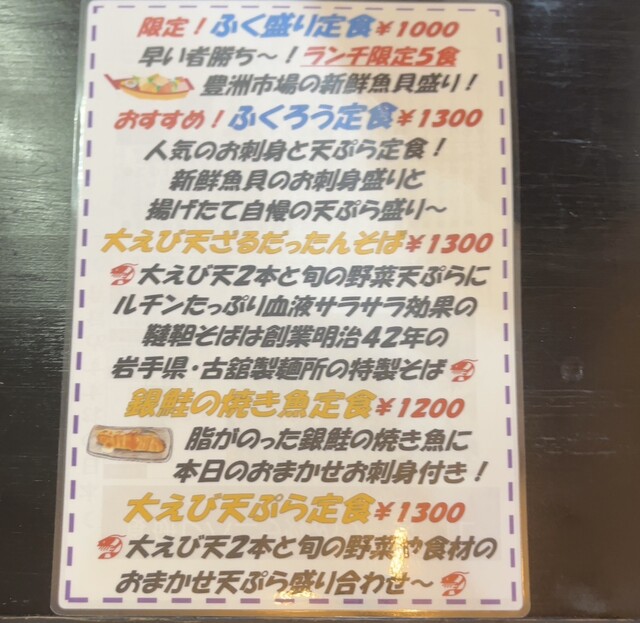 限定！ふく盛り定食￥1000
早い者勝ち～！ランチ限定5食
豊洲市場の新鮮魚貝盛り！
おすすめ！ふくろう定食￥1300
人気のお刺身と天ぷら定食！
新鮮魚貝のお刺身盛りと
揚げたて自慢の天ぷら盛り～
大えび天ざるだったんそば￥1300
大えび天2本と旬の野菜天ぷらに
ルチンたっぷり血液サラサラ効果の
韃靼そばは創業明治42年の
岩手県・古舘製麺所の特製そば
銀鮭の焼き魚定食￥1200
脂がのった銀鮭の焼き魚に
本日のおまかせお刺身付き！
大えび天ぷら定食￥1300
大えび天2本と旬の野菜や食材の
おまかせ天ぷら盛り合わせ～